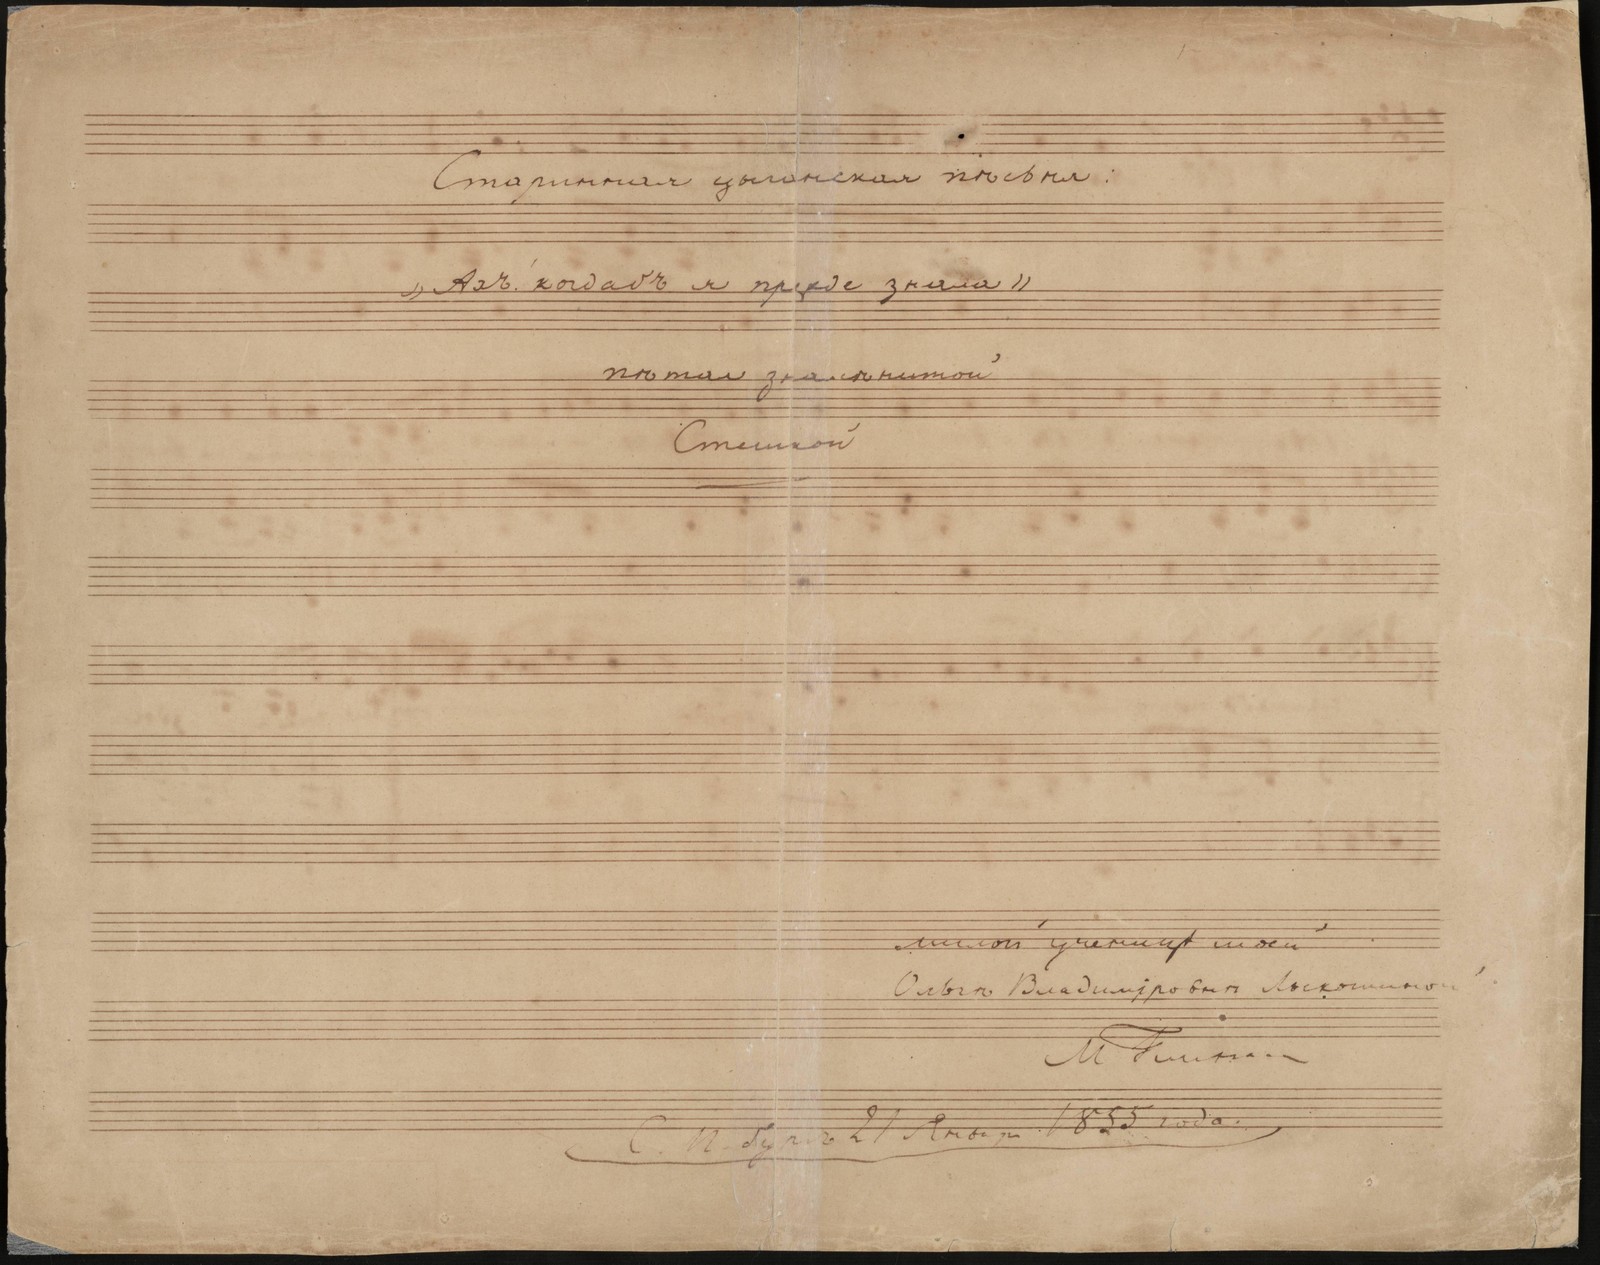 Старинная цыганская пѣсьня:
„Ахъ! когдабъ я прежде знала"
пѣтая знаменитой
Стешкой
милой ученицѣ моей
Ольгѣ Владимiровнѣ Лыкошиной
М Глинка
С. П. бургъ 21 Январ 1855 года.